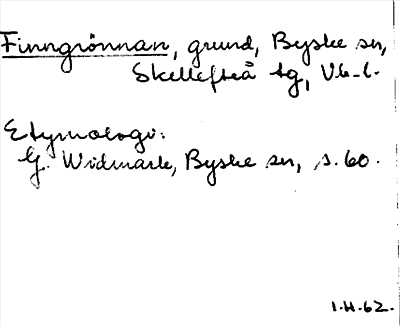 Finngrönnan, grund, Byske sn,
Skellefteå tg, Vb. l.
Etymologi:
G. Widmark, Byske sn, s. 60.
1.H.62.